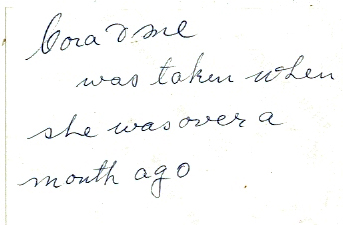 Cora & me
was taken when
she was over a
month ago